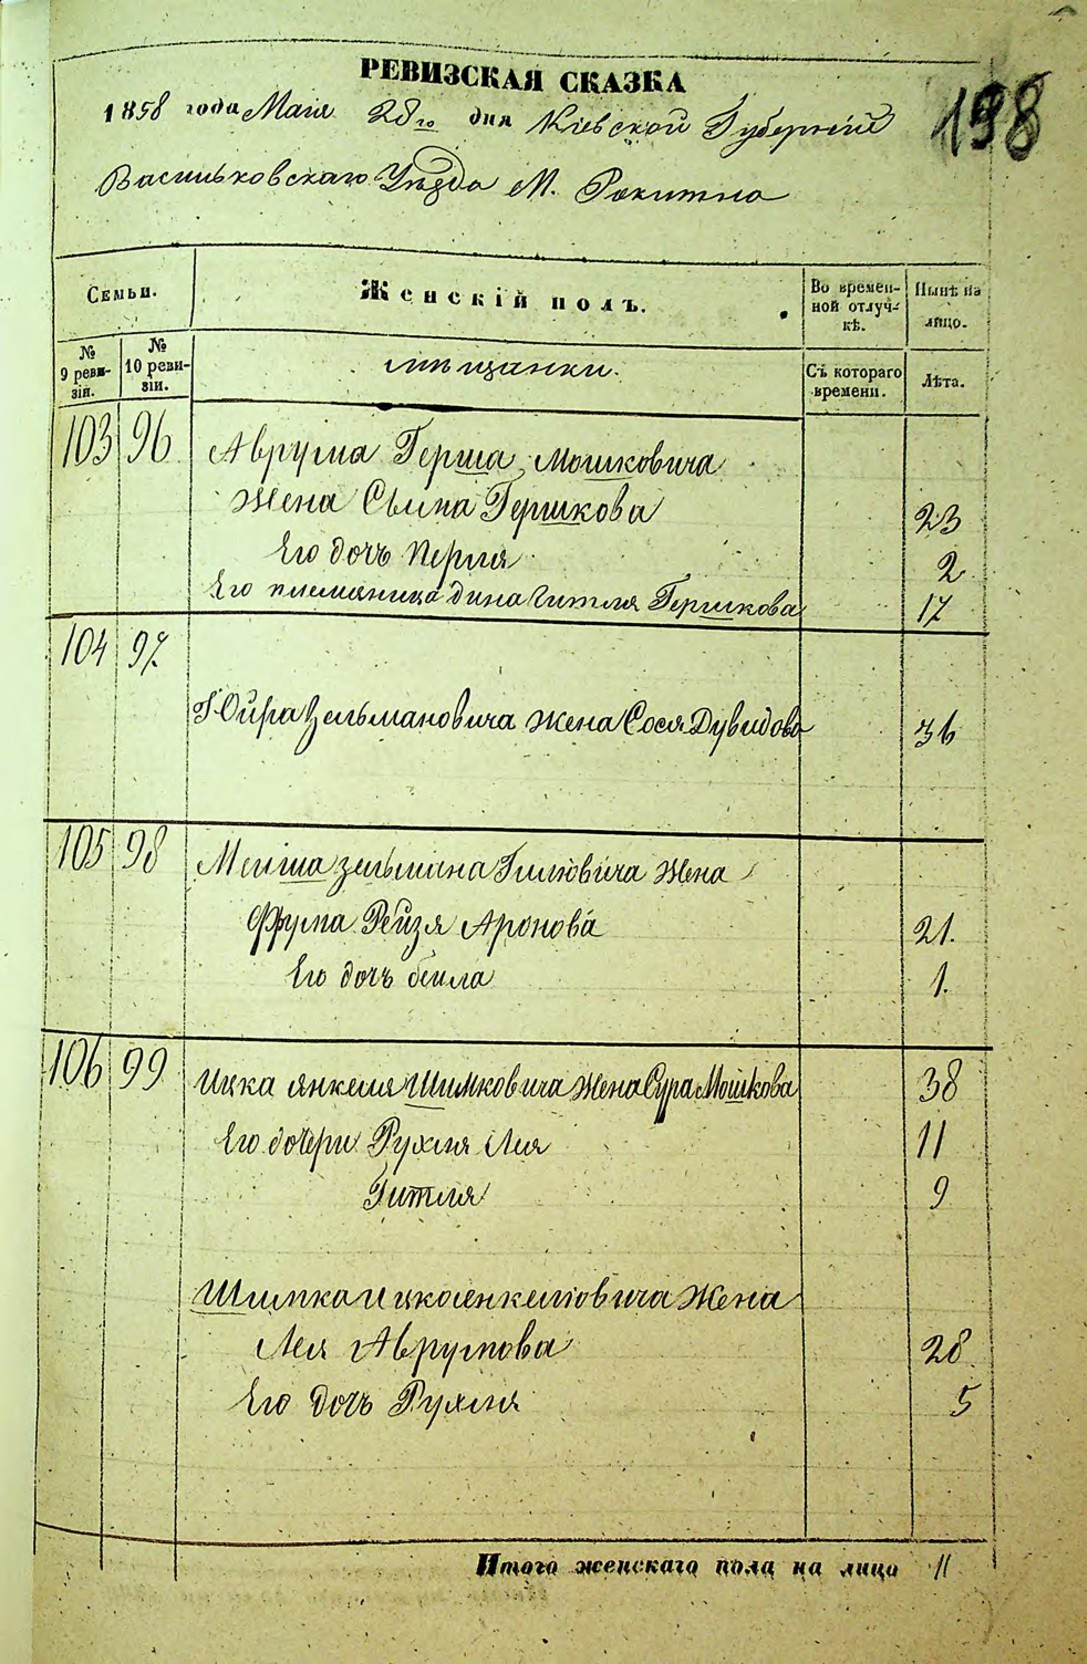 РЕВИЗСКАЯ СКАЗКА
1858 года Мая 28го дня Кіевской Губерніи
198
Васильковскаго Уезда М. Рокитно
Семьи.
Женскій полъ.
Во времен-
ной отлуч-
кѣ.
Нынѣ на
лицо.
№
9 реви-
зіи.
№
10 реви-
зіи.
мѣщанки.
Съ котораго
времени.
Лѣта.
103 96 Аврума Герша Мошковича
Жена Сыма Гершкова 23
Его дочь Перля 2
Его племяница Дина Гитля Гершкова 17
104 97
Юйра Зельмановича жена Сося Дувидова 36
105 98 Меиша Зельмана Жена
Фрума Рейзя Аронова 21.
Его дочь беила 1.
106 99 Ицка Янкеля Шимковича Жена Сура Мошкова 38
Его дочери Рухля Лея 11
Гитля 9
Шимка Ицкоянкелиовича Жена
Лея Аврумова 28
Его дочь Рухля 5
Итого женскаго пола на лицо 11